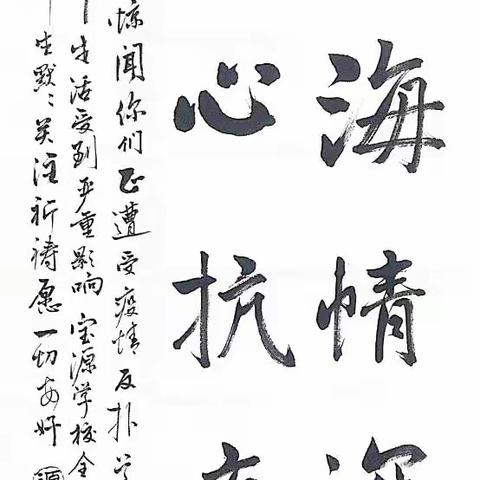 海情
心抗
惊闻你们正遭受疫情反扑
生活受到严重影响宝源学校全
生默默关注祈祷愿一切安好